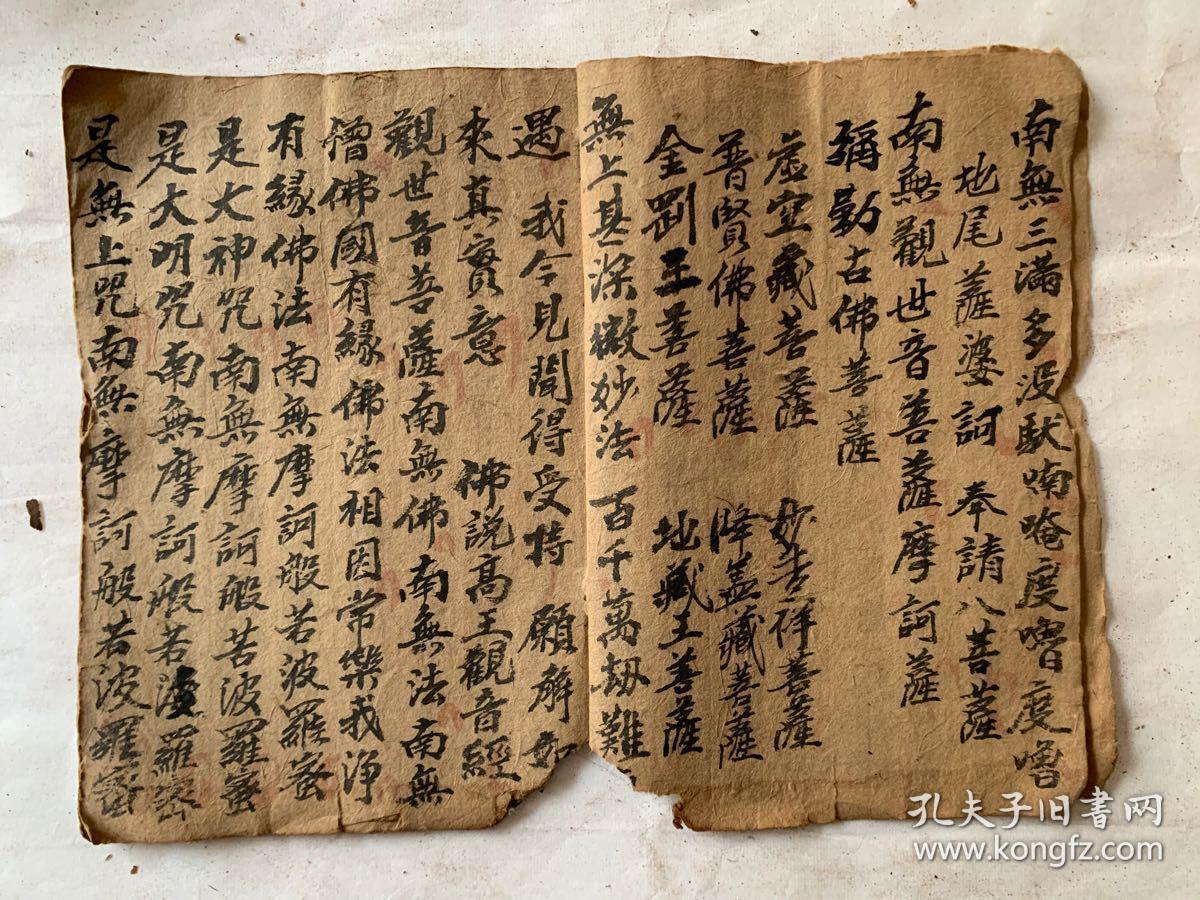 南無三滿多没馱喃唵度嚕度嚕
地尾薩婆訶 奉請八菩薩
南無觀世音菩薩摩訶薩
彌勒古佛菩薩
虛空藏菩薩 妙吉祥菩薩
普賢佛菩薩 降盖藏菩薩
金剛王菩薩 地藏王菩薩
無上甚深微妙法 百千萬刼難
遇 我今見聞得受持 願解如
來真實意 佛說高王觀音經
觀世音菩薩南無佛南無法南無
僧佛國有緣佛法相因常樂我淨
有緣佛法南無摩訶般若波羅蜜
是大神咒南無摩訶般若波羅蜜
是大明咒南無摩訶般若波羅蜜
是無上咒南無摩訶般若波羅蜜
孔夫子旧書网
www.kongfz.com